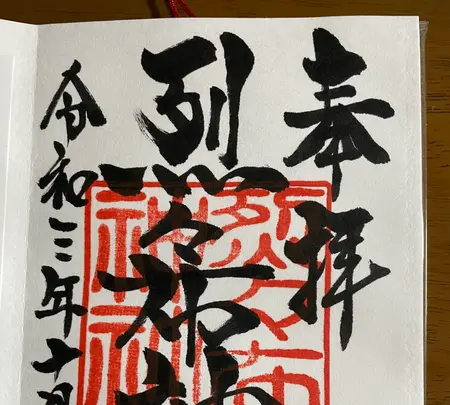 奉拝
烈々布神
令和三年十月